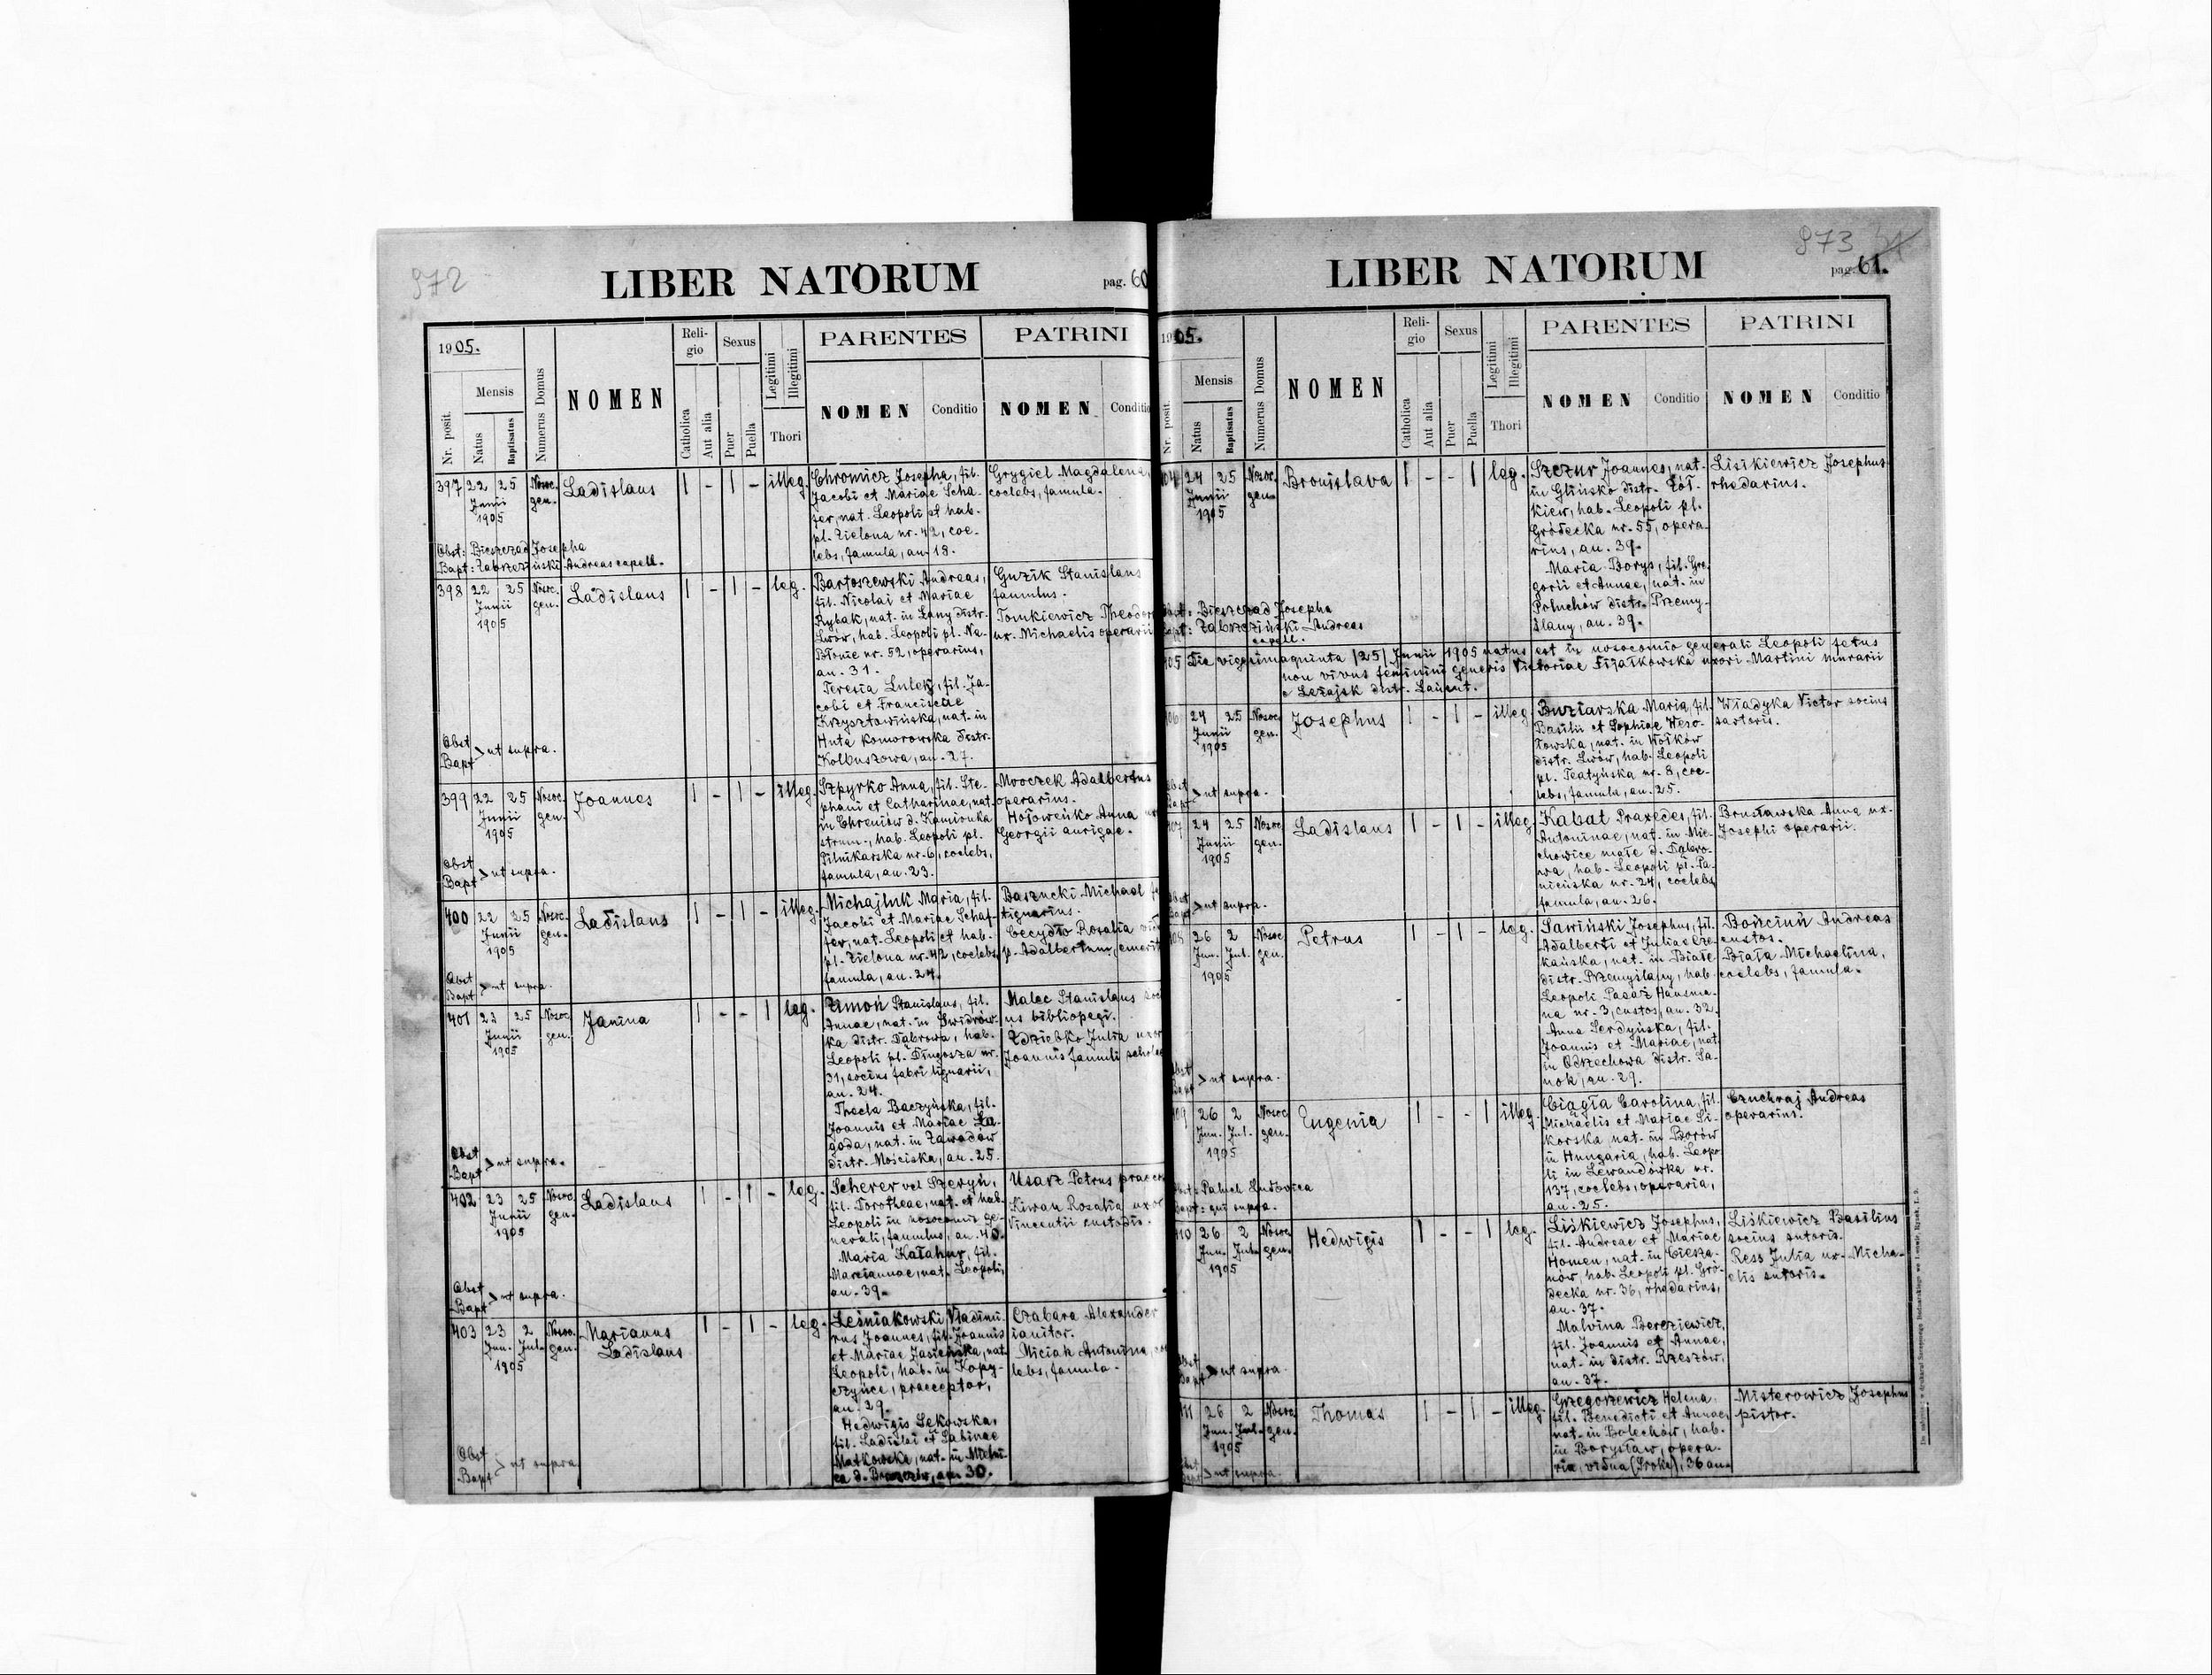 972
LIBER NATORUM
pag. 60
1905.
Nr. posit.
Mensis
Natus
Baptisatus
Numerus Domus
NOMEN
Reli-
gio
Catholica
Aut alia
Sexus
Puer
Puella
Legitimi
Illegitimi
Thori
PARENTES
NOMEN
Conditio
PATRINI
NOMEN
Conditio
397 22 25 Nosoc. gen. Ladislaus 1 - 1 - illeg.
Junii
1905
Chromicz Josepha, fil.
Jacobi et Mariae Scha-
fer, nat. Leopoli et hab.
pl. Zielona nr. 42, coe-
lebs, famula, an. 18.
Grygiel Magdalena,
coelebs, famula.
Obst: Bieszczad Josepha
Bapt: Zabrzeziński Andreas capell.
398 22 25 Nosoc. gen. Ladislaus 1 - 1 - leg.
Junii
1905
Bartoszewski Andreas,
fil. Nicolai et Mariae
Rybak, nat. in Łany distr.
Lwów, hab. Leopoli pl. Na-
Błonie nr. 52, operarius,
an. 31.
Teresia Lulek, fil. Ja-
cobi et Franciscae
Krzysztowińska, nat. in
Huta Komorowska distr.
Kolbuszowa, an. 27.
Guzik Stanislaus
famulus.
Tomkiewicz
ux. Michaelis operarii
Obst
Bapt > ut supra.
399 22 25 Nosoc. gen. Joannes 1 - 1 - illeg.
Junii
1905
Szpyrko Anna, fil. Ste-
phani et Catharinae, nat.
in Chreniów d. Kamionka
strum., hab. Leopoli pl.
Pilnikarska nr. 6, coelebs,
famula, an. 23.
Mroczek Adalbertus
operarius.
Hołoweńko Anna
Georgii aurigae.
Obst
Bapt > ut supra.
400 22 25 Nosoc. gen. Ladislaus 1 - 1 - illeg.
Junii
1905
Michajluk Maria, fil.
Jacobi et Mariae Schaf-
fer, nat. Leopoli et hab.
pl. Zielona nr. 42, coelebs,
famula, an. 24.
Baszucki Michael
tignarius.
Cecydło Rosalia
p. Adalbertum,
Obst
Bapt > ut supra.
401 23 25 Nosoc. gen. Janina 1 - - 1 leg.
Junii
1905
Zimoń Stanislaus, fil.
Annae, nat. in Świdrów-
ka distr. Dąbrowa, hab.
Leopoli pl. Długosza nr.
31, socius fabri lignarii,
an. 24.
Thecla Baczyńska, fil.
Joannis et Mariae Ła-
goda, nat. in Zawadów
distr. Mościska, an. 25.
Malec Stanislaus
us bibliopegi.
Ździebko Julia uxor
Joannis famuli
Obst
Bapt > ut supra.
402 23 25 Nosoc. gen. Ladislaus 1 - 1 - leg.
Junii
1905
Scherer vel Szeryń,
fil. Dorotheae, nat. et hab.
Leopoli in nosocomio ge-
nerali, famulus, an. 40.
Maria Kałahur, fil.
Mariannae, nat. Leopoli,
an. 39.
Usarz Petrus
Kiwan Rosalia uxor
Vincentii custodis.
Obst
Bapt > ut supra.
403 23 2 Nosoc. gen. Marianus 1 - 1 - leg.
Jun. Jul. Ladislaus
1905
Leśniakowski Vladimi-
rus Joannes, fil. Joannis
et Mariae Jasieńska, nat.
Leopoli, hab. in Kopy-
czyńce, praeceptor,
an. 29.
Hedwigis Sękowska,
fil. Ladislai et Sabinae
Matkowska, nat. in
an. 30.
Czabara Alexander
ianitor.
Miciak Antonina,
lebs, famula.
Obst
Bapt > ut supra
973
LIBER NATORUM
pag. 61.
1905.
Nr. posit.
Mensis
Natus
Baptisatus
Numerus Domus
NOMEN
Reli-
gio
Catholica
Aut alia
Sexus
Puer
Puella
Legitimi
Illegitimi
Thori
PARENTES
NOMEN
Conditio
PATRINI
NOMEN
Conditio
24 25 Nosoc. gen. Bronislava 1 - - 1 leg.
Junii
1905
Szczur Joannes, nat.
in Glińsko distr. Żół-
kiew, hab. Leopoli pl.
Gródecka nr. 55, opera-
rius, an. 39.
Maria Borys, fil. Gre-
gorii et Annae, nat. in
Połuchów distr. Przemy-
ślany, an. 39.
Lisikiewicz Josephus
rhedarius.
Obst: Bieszczad Josepha
Bapt: Zabrzeziński Andreas
capell.
405 Die vigesimaquinta /25/ Junii 1905 natus est in nosocomio generali Leopoli fetus
non vivus feminini generis Victoriae Fijałkowska uxori Martini murarii
e Leżajsk distr. Łańcut.
24 25 Nosoc. gen. Josephus 1 - 1 - illeg.
Junii
1905
Buziarska Maria, fil.
Basilii et Sophiae Weso-
łowska, nat. in Wołków
distr. Lwów, hab. Leopoli
pl. Teatyńska nr. 8, coe-
lebs, famula, an. 25.
Władyka Victor socius
sartoris.
Obst
Bapt > ut supra.
24 25 Nosoc. gen. Ladislaus 1 - 1 - illeg.
Junii
1905
Kabat Praxedes, fil.
Antoninae, nat. in Mie-
chowice małe d. Dąbro-
wa, hab. Leopoli pl. Pa-
nieńska nr. 24, coelebs,
famula, an. 26.
Brusławska Anna ux.
Josephi operarii.
Obst
Bapt > ut supra.
26 2 Nosoc. gen. Petrus 1 - 1 - leg.
Jun. Jul.
1905
Sawiński Josephus, fil.
Adalberti et Juliae Cze-
kańska, nat. in Białe
distr. Przemyślany, hab.
Leopoli Pasaż Hausma-
na nr. 3, custos, an. 32.
Anna Serdyńska, fil.
Joannis et Mariae, nat.
in Odrzechowa distr. Sa-
nok, an. 29.
Bońciuń Andreas
custos.
Biała Michaelina,
coelebs, famula.
Obst
Bapt > ut supra.
26 2 Nosoc. gen. Eugenia 1 - - 1 illeg.
Jun. Jul.
1905
Ciągła Carolina, fil.
Michaelis et Mariae Si-
korska nat. in Borów
in Hungaria, hab. Leopo-
li in Lewandówka nr.
137, coelebs, operaria,
an. 25.
Czuchraj Andreas
operarius.
Obst: Paluch Ludovica
Bapt: qui supra.
26 2 Nosoc. gen. Hedwigis 1 - - 1 leg.
Jun. Jul.
1905
Liśkiewicz Josephus,
fil. Andreae et Mariae
Homen, nat. in Ciesza-
nów, hab. Leopoli pl. Gró-
decka nr. 36, rhedarius,
an. 37.
Malvina Bereziewicz,
fil. Joannis et Annae,
nat. in distr. Rzeszów,
an. 37.
Liśkiewicz Basilius
socius sutoris.
Ress Julia ux. Micha-
elis sutoris.
Obst
Bapt > ut supra.
26 2 Nosoc. gen. Thomas 1 - 1 - illeg.
Jun. Jul.
1905
Grzegorzewicz Helena,
fil. Benedicti et Annae,
nat. in Bolechów, hab.
in Borysław, opera-
ria, vidua (Sroka), 36 an.
Misterowicz Josephus
pistor.
Obst
Bapt > ut supra.